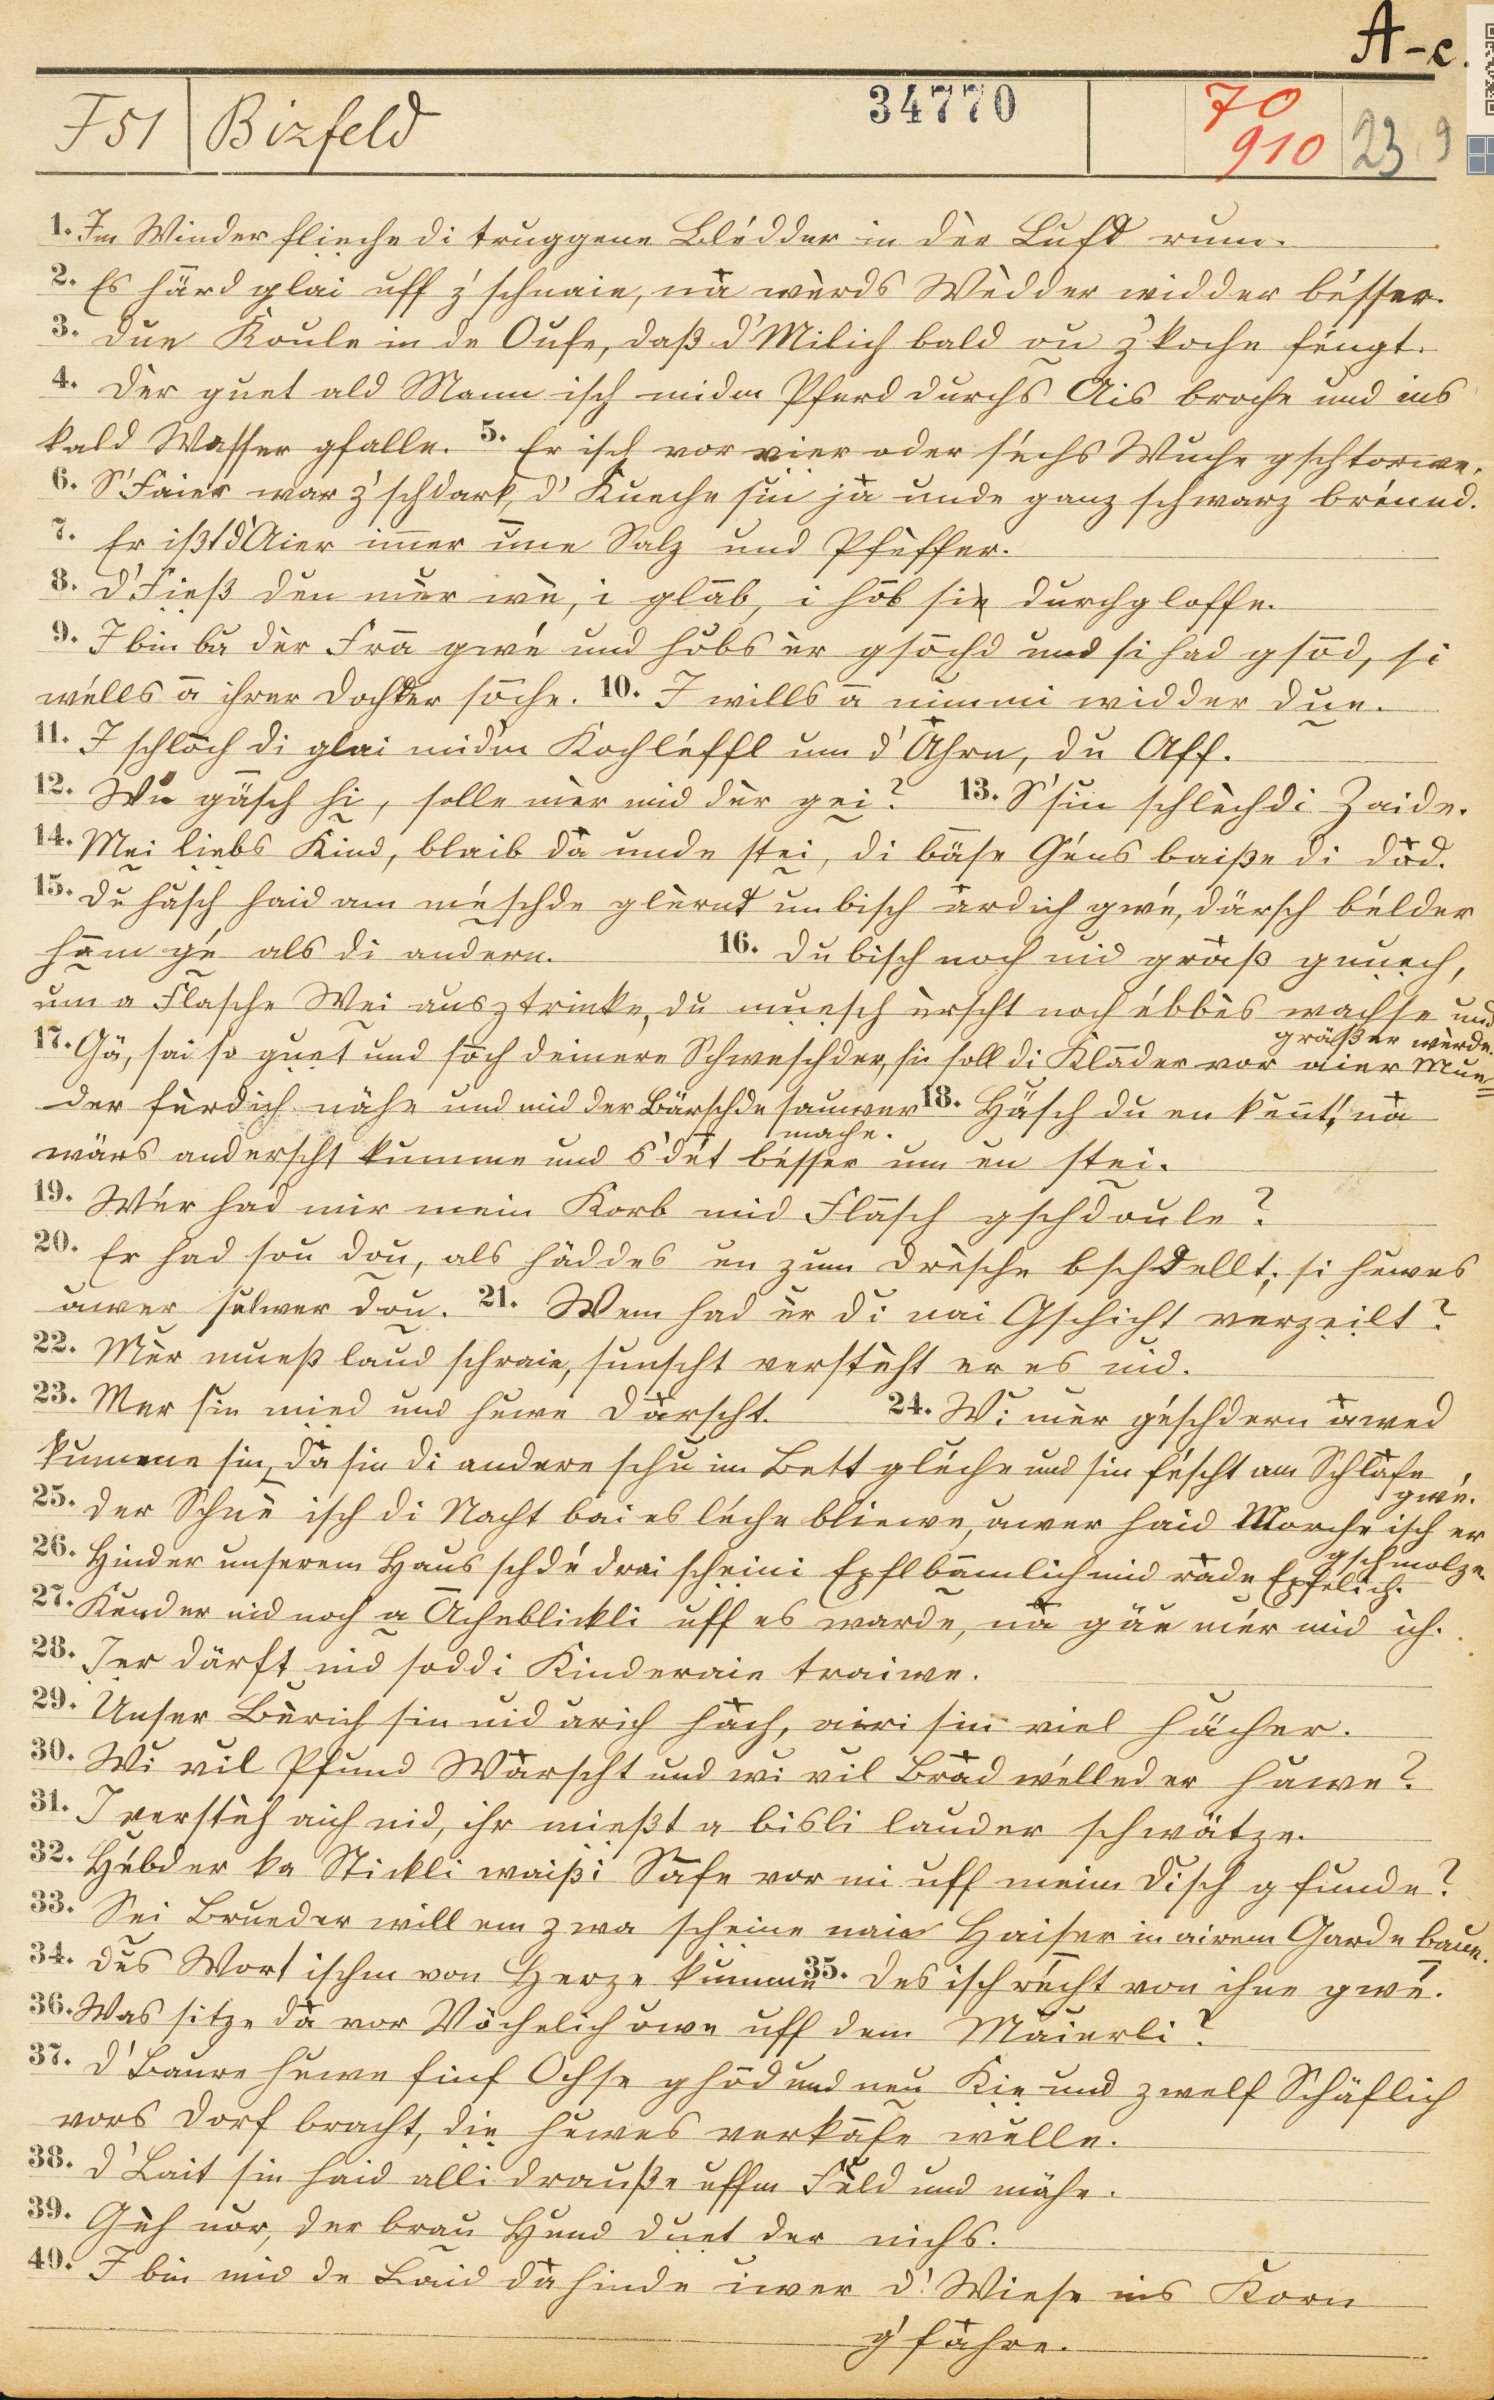 A-c.
F 51 Bizfeld 34770 70 910 23 9
1. Im Winder flieche di truggene Blédder in dèr Luft rum.
2. Es härd glai uff z'schnaie, nà wèrds Wèdder widder bésser.
3. Due Koule in de Oufe, daß d'Milich bald ou z'koche féngt.
4. Dèr guet ald Mann isch midm Pferd durchs Ais broche und ins
kald Wasser gfalle. 5. Er isch vor vier oder séchs Wuche gschtorwe.
6. S'Faier war z'schdark, d'Kueche sin jà unde ganz schwarz brénnd.
7. Er ißt d'Aier immer ūne Salz und Pfèffer.
8. D'Fieß den mèr wè, i glāb, i hōb sie durchgloffe.
9. I bin bà dèr Frā gwé und hōbs èr gsōchd und si had gsōd, si
wélls ā ihrer Dochder sōche. 10. I wills ā nimmi widder due.
11. I schlōch di glai midm Kochléffl um d'Ahre, du Aff.
12. Wu gāsch hi, solle mèr mid dèr gei? 13. S'sin schlèchdi Zaide.
14. Mei liebs Kind, blaib dà unde stei, di bāse Géns baiße di död.
15. Du hàsch haid am méschde glèrnt un bisch ärdich gwé, därsch bélder
hām gé als di andern. 16. Du bisch noch nid gräß gnuech,
um a Flasche Wei ausztrinke, du muesch èrscht noch ébbès wachse und
gräßer wèrde.
17. Gä, sai so guet und sōch deinere Schweschder, sie soll di Klāder vor aier Mue=
der fèrdich nähe und mid der Bärschde sauwer
mache.
18. Häsch du en kennt, nà
wärs anderscht kumme und s'dét bésser um en stei.
19. Wér had mir mein Korb mid Flāsch gschdoule?
20. Er had sou dou, als häddes en zum Drèsche bschdellt; si hewes
awer sèlwer dou. 21. Wem had èr di nai Gschicht verzeilt?
22. Mèr mueß laud schraie, sunscht verstèht er es nid.
23. Mer sin mied und hewe Därscht. 24. Wi mèr géschdern àwed
kumme sin, dà sin di andere schu im Bett gléche und sin féscht am Schlàfe
gwé.
25. Der Schnē isch di Nacht bai es léche bliewe, awer haid Morche isch er
gschmolze.
26. Hinder unserem Haus schdé drai scheini Epflbāmlich mid räde Epfelich.
27. Kender nid noch a Ācheblickli uff es warde, nà gäe mér mid ich.
28. Ier därft nid soddi Kinderaie traiwe.
29. Unser Bèrich sin nid arich häch, airi sin viel hächer.
30. Wi vil Pfund Wärscht und wi vil Bräd wélleder hawe?
31. I verstèh aich nid, ihr mießt a bisli lauder schwätze.
32. Hébder ka Stickli waißi Sāfe vor mi uff meim Disch gfunde?
33. Sei Brueder will em zwa scheine naie Haiser in airem Garde baue.
34. Dès Wort ischm von Herze kumme 35. Des isch récht von ihne gwé.
36. Was sitze dà vor Vöchelich owe uff dem Mäierli?
37. D'Baure hewe finf Ochse ghōd und neu Kie und zwelf Schäflich
vors Dorf bracht, die hewes verkāfe wèlle.
38. D'Lait sin haid alli drauße uffm Fèld und mähe.
39. Gèh nor, der brau Hund duet der nichs.
40. I bin mid de Laid dà hinde iwer d'Wiese ins Korn
g'fàhre.